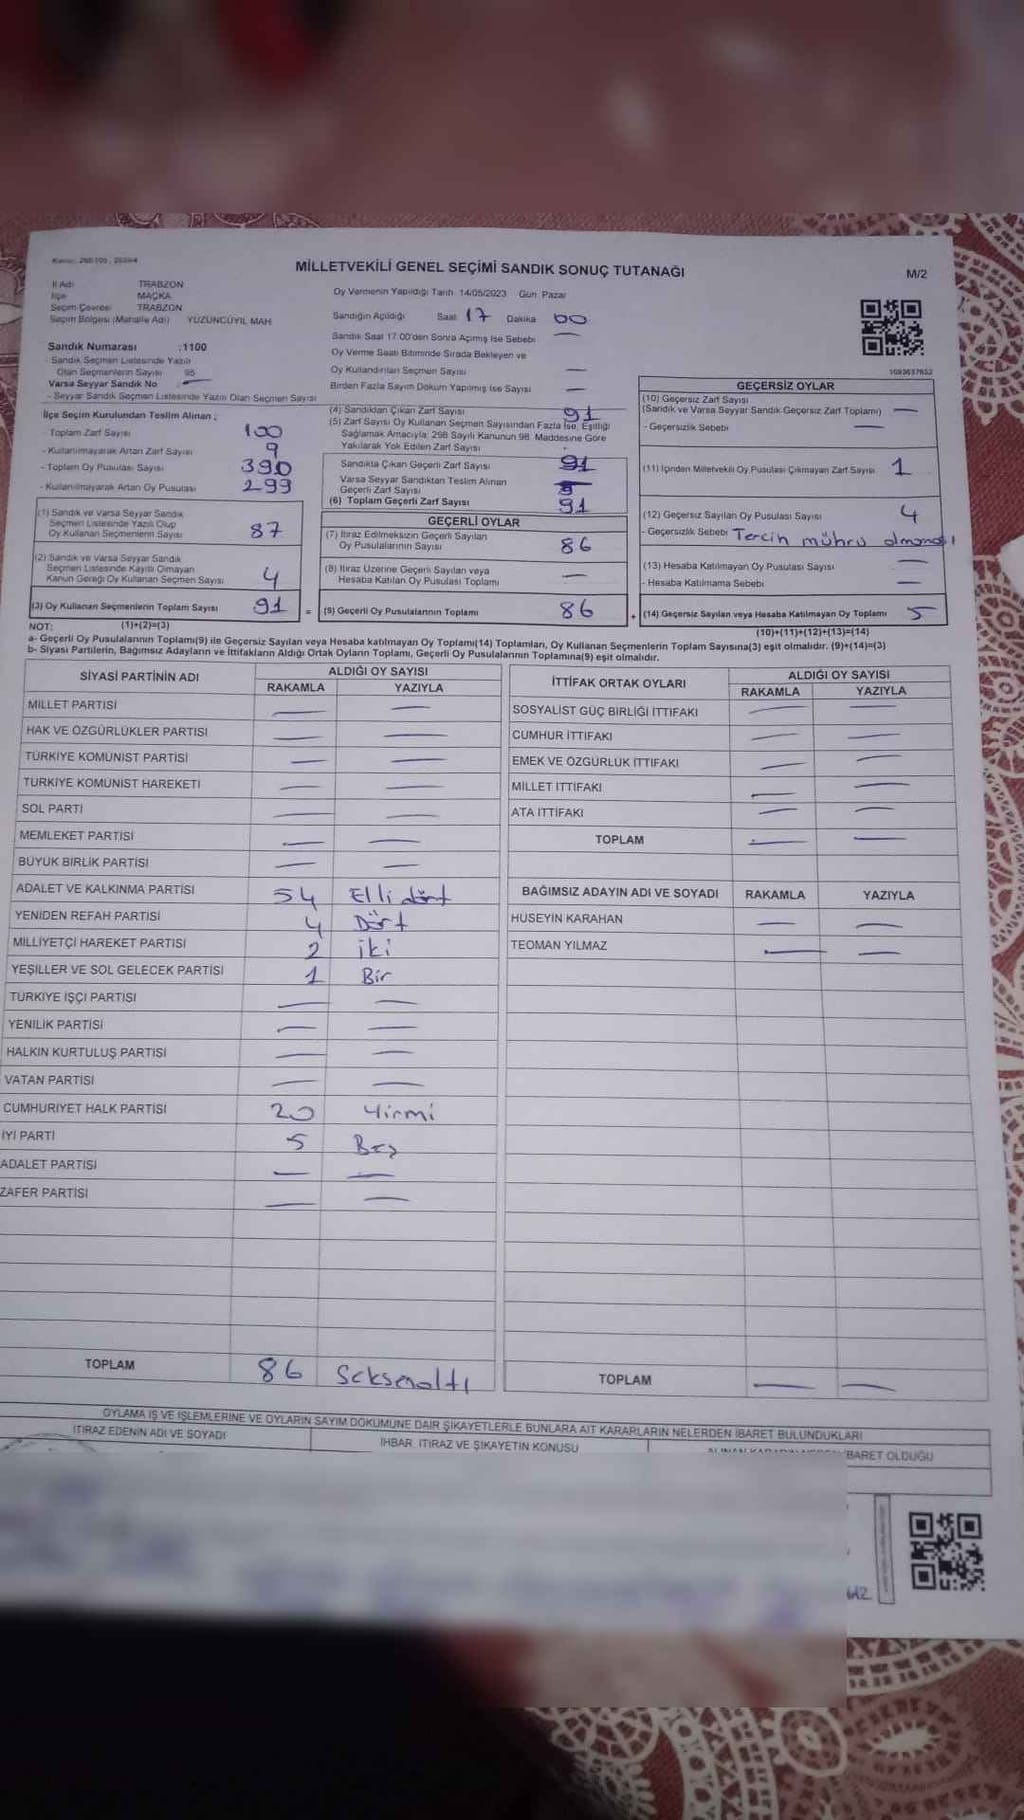 MİLLETVEKİLİ GENEL SEÇİMİ SANDIK SONUÇ TUTANAĞI
M/2
İl Adı TRABZON
İlçe MAÇKA
Seçim Çevresi TRABZON
Seçim Bölgesi (Mahalle Adı) YÜZÜNCÜYIL MAH
Sandık Numarası :1100
- Sandık Seçmen Listesinde Yazılı
Olan Seçmenlerin Sayısı 95
Varsa Seyyar Sandık No : —
- Seyyar Sandık Seçmen Listesinde Yazılı Olan Seçmen Sayısı
Oy Vermenin Yapıldığı Tarih 14/05/2023 Gün Pazar
Sandığın Açıldığı Saat 17 Dakika 00
Sandık Saat 17:00'den Sonra Açılmış İse Sebebi —
Oy Verme Saati Bitiminde Sırada Bekleyen ve
Oy Kullandırılan Seçmen Sayısı —
Birden Fazla Sayım Döküm Yapılmış İse Sayısı —
1083637652
İlçe Seçim Kurulundan Teslim Alınan ;
- Toplam Zarf Sayısı 100
- Kullanılmayarak Artan Zarf Sayısı 9
- Toplam Oy Pusulası Sayısı 390
- Kullanılmayarak Artan Oy Pusulası 299
(1) Sandık ve Varsa Seyyar Sandık
Seçmen Listesinde Yazılı Olup
Oy Kullanan Seçmenlerin Sayısı 87
(2) Sandık ve Varsa Seyyar Sandık
Seçmen Listesinde Kayıtlı Olmayan
Kanun Gereği Oy Kullanan Seçmen Sayısı 4
(3) Oy Kullanan Seçmenlerin Toplam Sayısı 91
(1)+(2)=(3)
(4) Sandıktan Çıkan Zarf Sayısı 91
(5) Zarf Sayısı Oy Kullanan Seçmen Sayısından Fazla İse, Eşitliği
Sağlamak Amacıyla; 298 Sayılı Kanunun 98. Maddesine Göre
Yakılarak Yok Edilen Zarf Sayısı
Sandıkta Çıkan Geçerli Zarf Sayısı 91
Varsa Seyyar Sandıktan Teslim Alınan
Geçerli Zarf Sayısı
(6) Toplam Geçerli Zarf Sayısı 91
GEÇERLİ OYLAR
(7) İtiraz Edilmeksizin Geçerli Sayılan
Oy Pusulalarının Sayısı 86
(8) İtiraz Üzerine Geçerli Sayılan veya
Hesaba Katılan Oy Pusulası Toplamı —
= (9) Geçerli Oy Pusulalarının Toplamı 86
GEÇERSİZ OYLAR
(10) Geçersiz Zarf Sayısı
(Sandık ve Varsa Seyyar Sandık Geçersiz Zarf Toplamı) —
- Geçersizlik Sebebi —
(11) İçinden Milletvekili Oy Pusulası Çıkmayan Zarf Sayısı 1
(12) Geçersiz Sayılan Oy Pusulası Sayısı 4
- Geçersizlik Sebebi Tercih mührü olmaması
(13) Hesaba Katılmayan Oy Pusulası Sayısı —
- Hesaba Katılmama Sebebi —
+ (14) Geçersiz Sayılan veya Hesaba Katılmayan Oy Toplamı 5
(10)+(11)+(12)+(13)=(14)
NOT:
a- Geçerli Oy Pusulalarının Toplamı(9) ile Geçersiz Sayılan veya Hesaba katılmayan Oy Toplamı(14) Toplamları, Oy Kullanan Seçmenlerin Toplam Sayısına(3) eşit olmalıdır. (9)+(14)=(3)
b- Siyasi Partilerin, Bağımsız Adayların ve İttifakların Aldığı Ortak Oyların Toplamı, Geçerli Oy Pusulalarının Toplamına(9) eşit olmalıdır.
SİYASİ PARTİNİN ADI ALDIĞI OY SAYISI
RAKAMLA YAZIYLA
MİLLET PARTİSİ — —
HAK VE ÖZGÜRLÜKLER PARTİSİ — —
TÜRKİYE KOMÜNİST PARTİSİ — —
TÜRKİYE KOMÜNİST HAREKETİ — —
SOL PARTİ — —
MEMLEKET PARTİSİ — —
BÜYÜK BİRLİK PARTİSİ — —
ADALET VE KALKINMA PARTİSİ 54 Elli dört
YENİDEN REFAH PARTİSİ 4 Dört
MİLLİYETÇİ HAREKET PARTİSİ 2 iki
YEŞİLLER VE SOL GELECEK PARTİSİ 1 Bir
TÜRKİYE İŞÇİ PARTİSİ — —
YENİLİK PARTİSİ — —
HALKIN KURTULUŞ PARTİSİ — —
VATAN PARTİSİ — —
CUMHURİYET HALK PARTİSİ 20 Yirmi
İYİ PARTİ 5 Beş
ADALET PARTİSİ — —
ZAFER PARTİSİ — —
TOPLAM 86 Seksenaltı
İTTİFAK ORTAK OYLARI ALDIĞI OY SAYISI
RAKAMLA YAZIYLA
SOSYALİST GÜÇ BİRLİĞİ İTTİFAKI — —
CUMHUR İTTİFAKI — —
EMEK VE ÖZGÜRLÜK İTTİFAKI — —
MİLLET İTTİFAKI — —
ATA İTTİFAKI — —
TOPLAM — —
BAĞIMSIZ ADAYIN ADI VE SOYADI RAKAMLA YAZIYLA
HÜSEYİN KARAHAN — —
TEOMAN YILMAZ — —
TOPLAM — —
OYLAMA İŞ VE İŞLEMLERİNE VE OYLARIN SAYIM DÖKÜMÜNE DAİR ŞİKAYETLERLE BUNLARA AİT KARARLARIN NELERDEN İBARET BULUNDUKLARI
İTİRAZ EDENİN ADI VE SOYADI
İHBAR, İTİRAZ VE ŞİKAYETİN KONUSU
BARET OLDUĞU